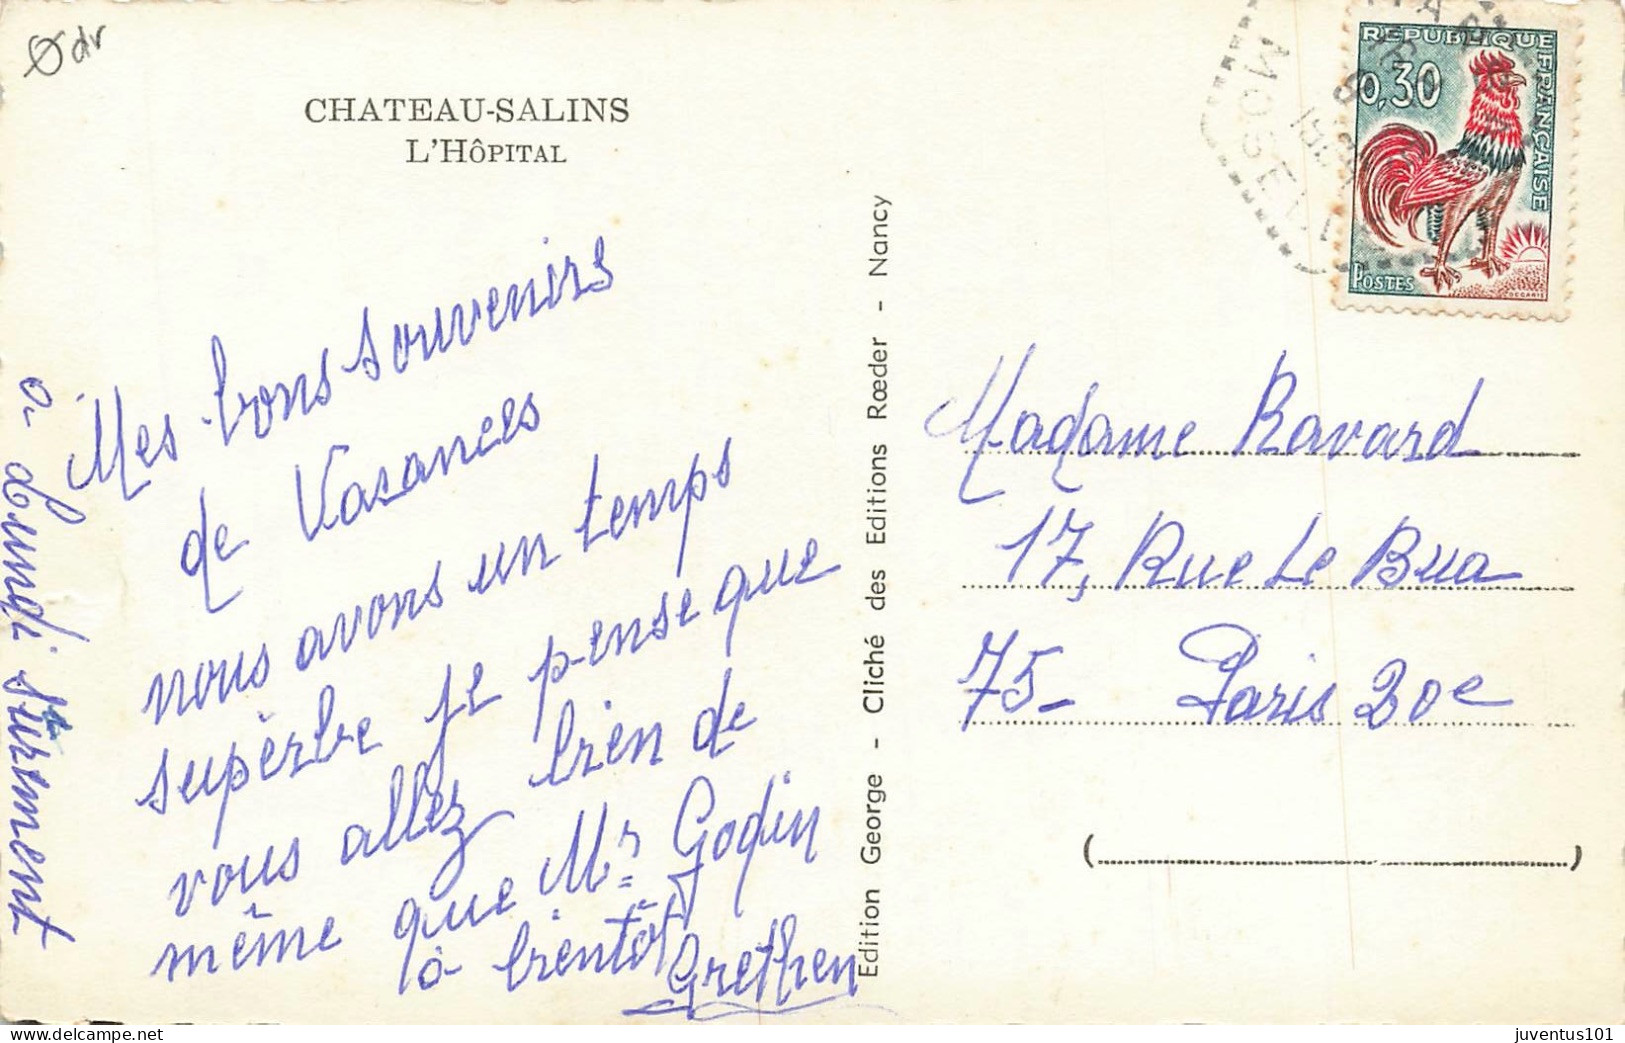 Ødr
CHATEAU-SALINS
L'HÔPITAL
Mes bons souvenirs
de Vacances
nous avons un temps
superbe je pense que
vous allez bien de
même que Mr Godin
à bientôt
Grethen
à Lundi surment
Edition George - Cliché des Editions Rœder - Nancy
MOSELLE
REPUBLIQUE FRANÇAISE
0,30
POSTES
DECARIS
Madame Ravard
17, Rue Le Bua
75- Paris 20e
(
)
juventus101